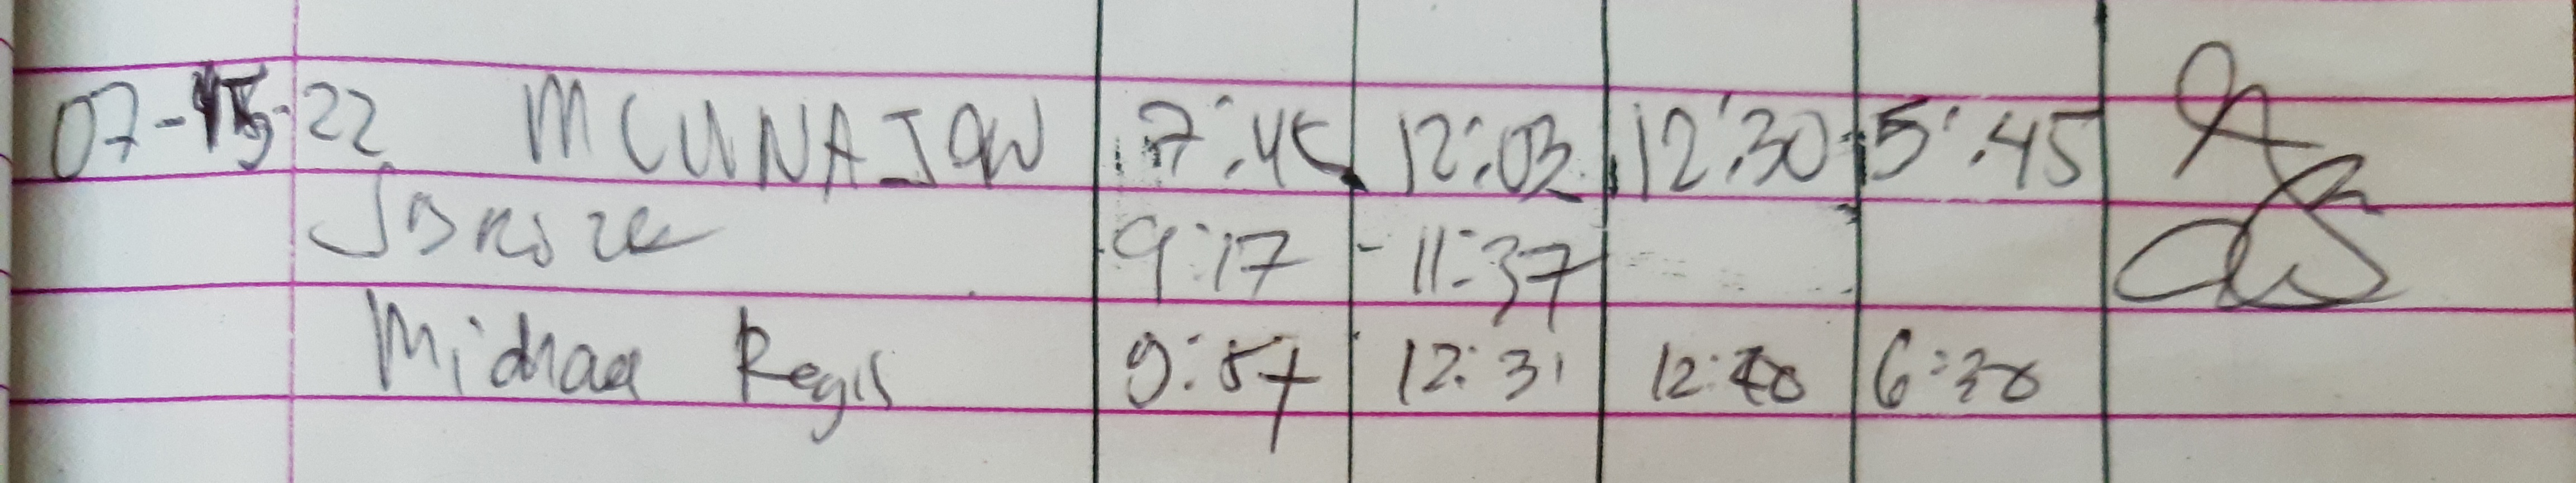 07-15-22 MCUNAJAW 7:45 12:03 12:30 5:45
9:17 - 11:37
Michael Regis 9:57 12:31 12:40 6:30